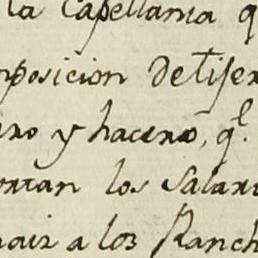 la Capellania q
posicion de tiser
no y hacer, ql.
ortan los Salari
a los Ranch